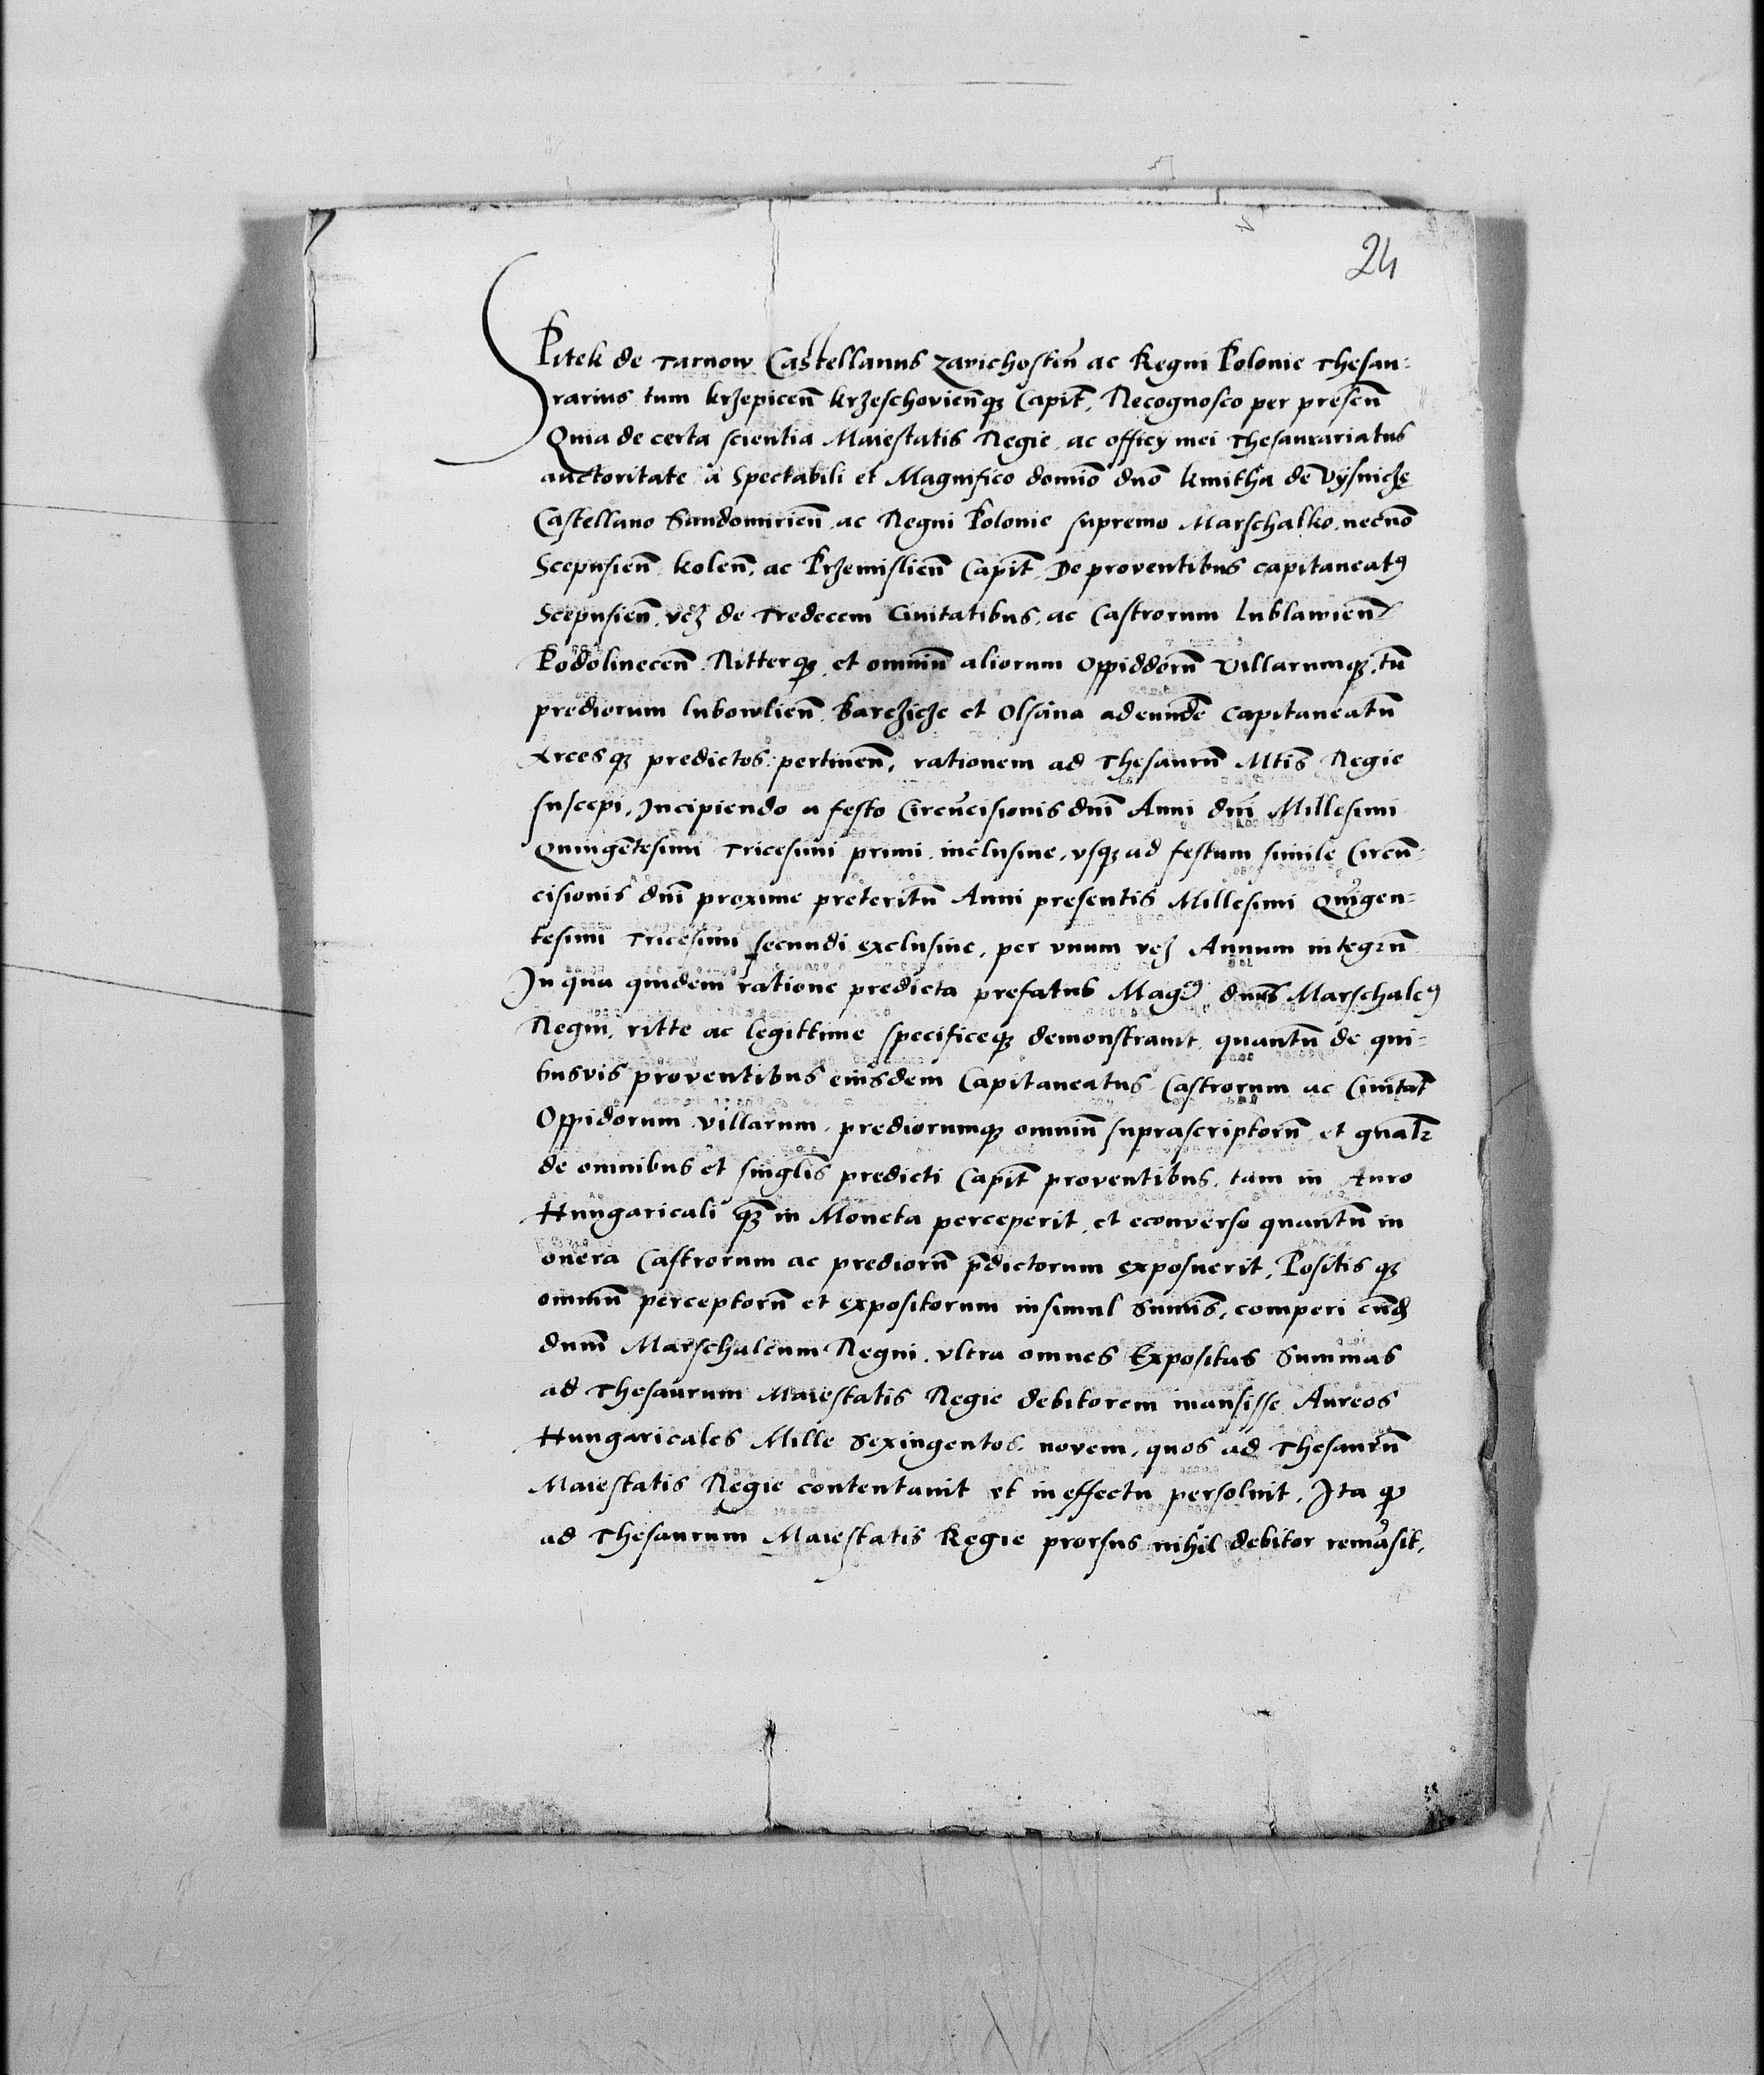 24
SPitek de Tarnow Castellanus Zavichosten̄ ac Regni Polonie Thesau⸗
rarius tum krzepicen̄ krzeschovien̄qꝫ Capit̄, Recognosco per presen̄
Quia de certa scientia Maiestatis Regie, ac officy mei Thesaurariatus
auctoritate a Spectabili et Magnifico domīo dūo kmitha de Vysnicze
Castellano Sandomirien̄ ac Regni Polonie supremo Marschalko, necnō
Scepusien̄ kolen̄, ac Przemislien̄ Capit̄. De proventibus capitaneatꝰ
Scepusien̄, vꝫ de Tredecem Civitatibus, ac Castrorum lublawien̄
Podolinecen̄ Ritterqꝫ, et omniū aliorum oppiddorū Villarumqꝫ, tū
prediorum lubowlien̄ Barczicze et Olsana ad eundē Capitaneatū
Arcesqꝫ predictos pertinen̄, rationem ad Thesaurū Mtis̄ Regie
suscepi, Incipiendo a festo Circūcisionis dnī Anni dnī Millesimi
Quingētesimi Tricesimi primi inclusiue, vsqꝫ ad festum simile Circū⸗
cisionis dnī proxime preteritū Anni presentis Millesimi Quīgen⸗
tesimi Tricesimi secundi exclusiue, per vnum vꝫ Annum integrū
In qua quidem ratione predicta prefatus Magcꝰ dnus Marschalcꝰ
Regni, ritte ac legittime specificeqꝫ demonstrauit, quantū de qui⸗
busvis proventibus eiusdem Capitaneatus Castrorum ac Civitat̄
Oppidorum villarum, prediorumqꝫ omniū suprascriptorū et gnalr̄
de omnibus et singlis̄ predicti Capit̄ proventibus, tam in Auro
Hungaricali qꝫ̄ in Moneta perceperit, et econverso quantū in
onera Castrorum ac prediorū p̄dictorum exposuerit, Positis qꝫ
omniū perceptorū et expositorum insimul Sumīs, comperi eūd
dnum̄ Marschalcum Regni, vltra omnes Expositas Summas
ad Thesaurum Maiestatis Regie debitorem mansisse Aureos
Hungaricales Mille Sexingentos novem, quos ad Thesaurū
Maiestatis Regie contentauit et in effectu persoluit, Ita ꝙ
ad Thesaurum Maiestatis Regie prorsus nihil debitor remāsit,